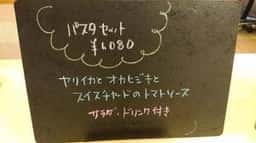 パスタセット
¥1080
ヤリイカとオカヒジキと
スイスチャードのトマトソース
サラダ・ドリンク付き